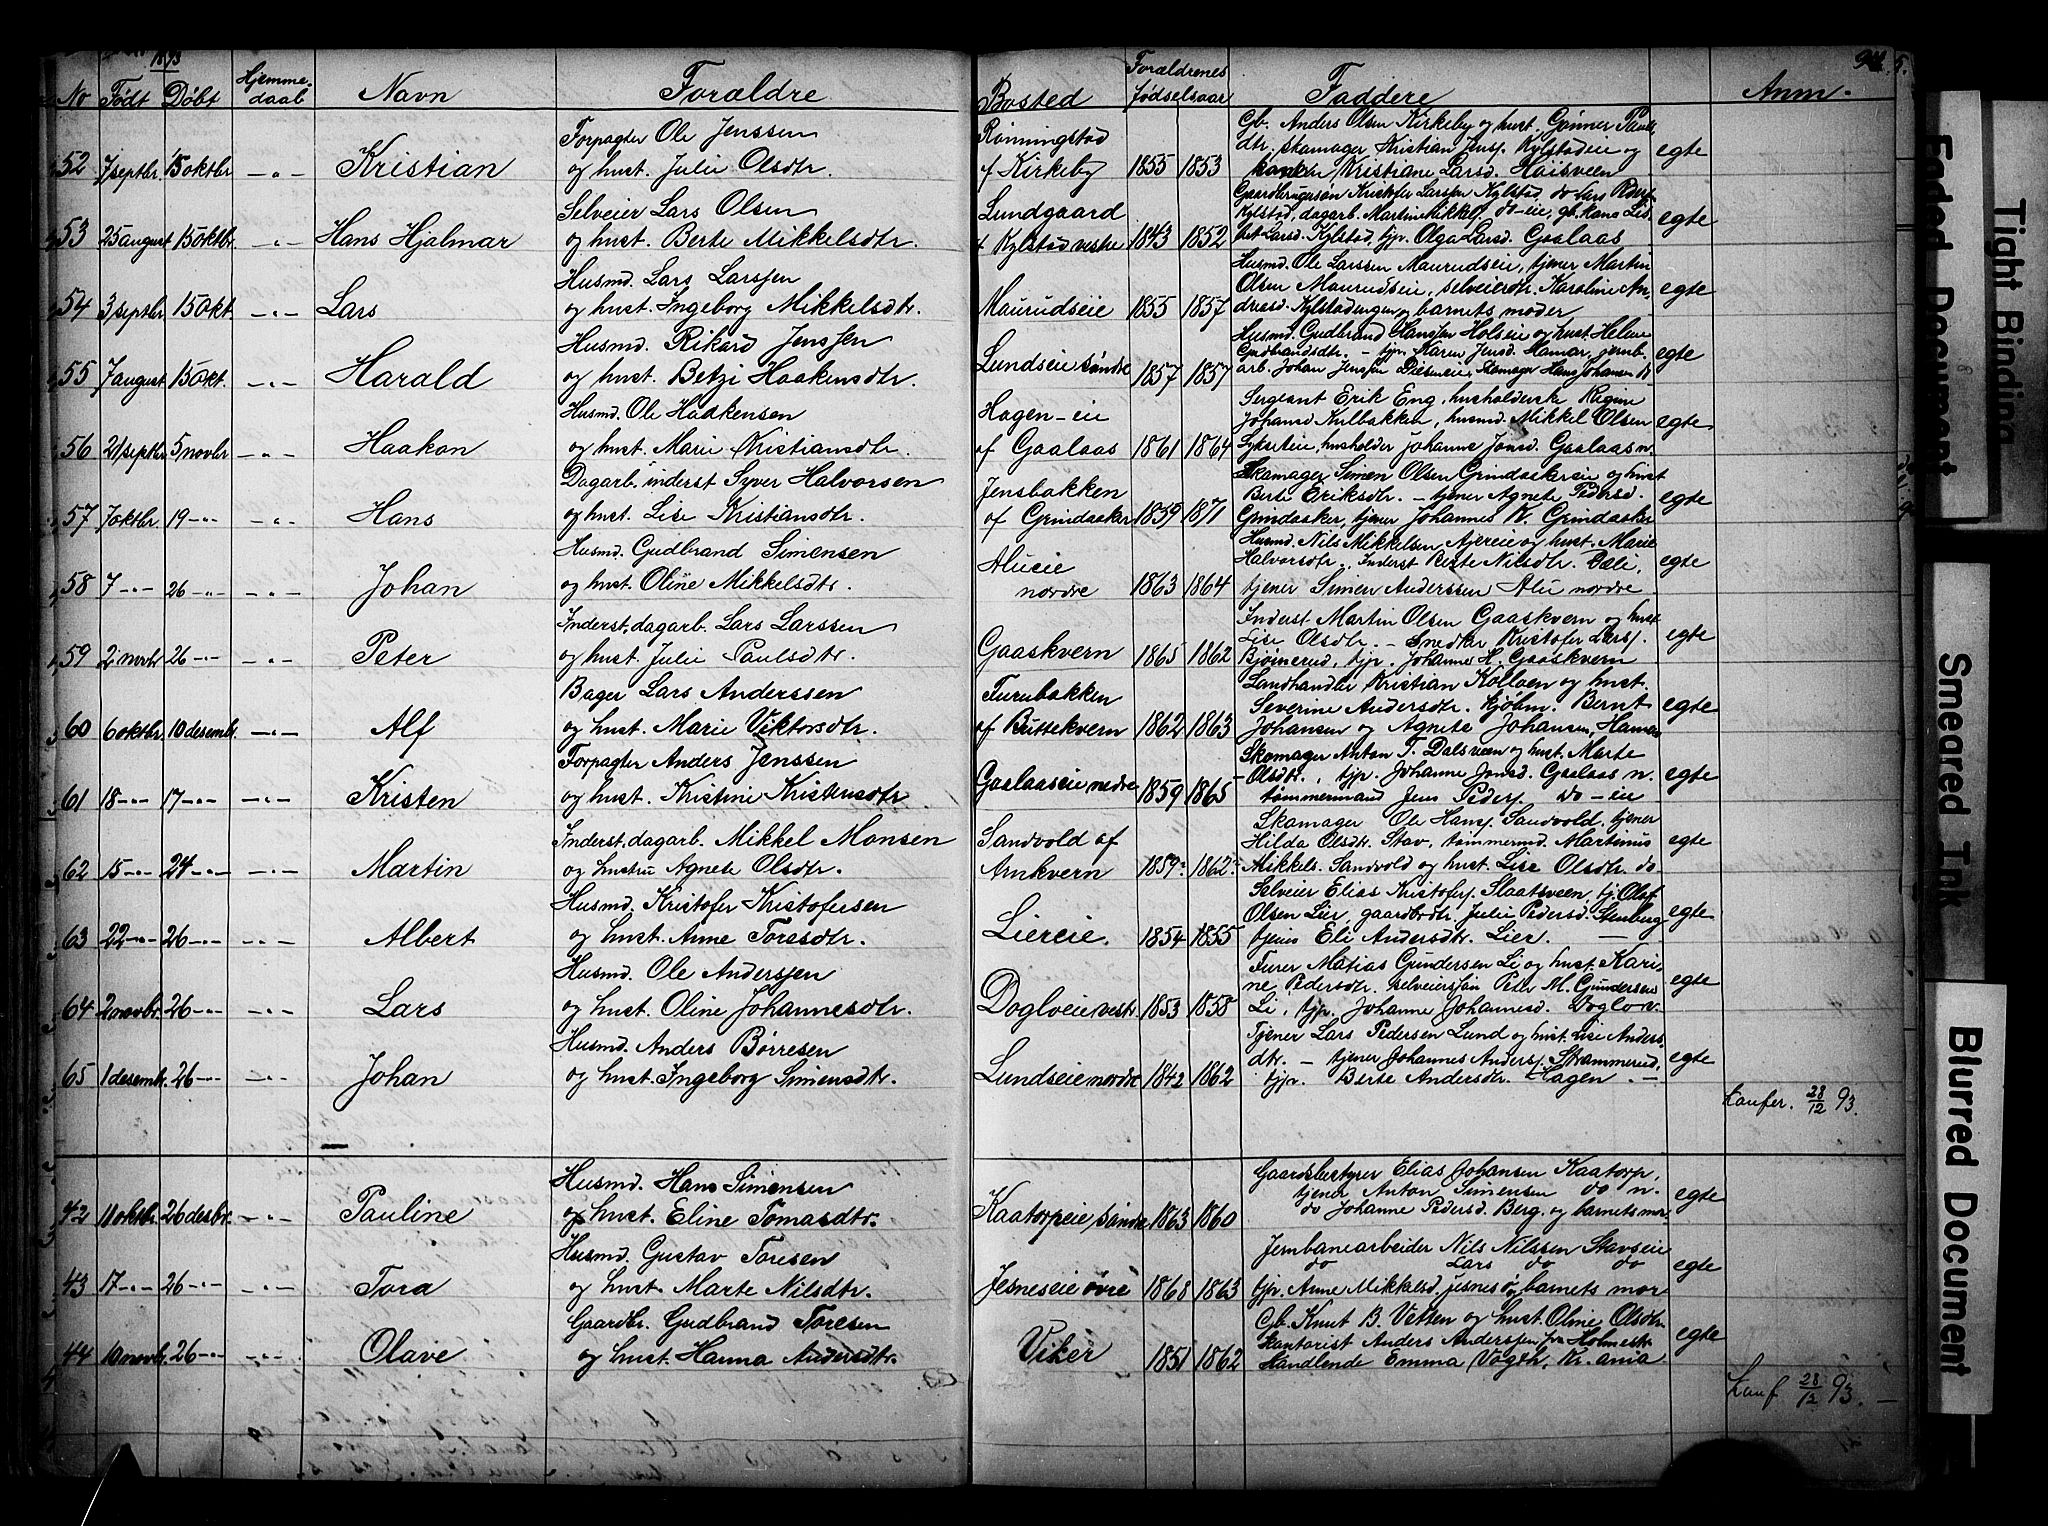 1893
No Født Døbt Hjemme-daab Navn Forældre Bosted Forældrenes fødselsaar Faddere Anm.
94. 5.
Forpagter Ole Jenssen
52 7 septbr 15 oktbr -"- Kristian og hust. Julie Olsdtr.
Rönningstad
af Kirkeby 1855 1853
Gb. Anders Olsen Kirkeby og hust. Gönner Pauls
dtr. skomager Kristian Jensf. Kylstadeie og
Kristiane Larsd. Hoisveen egte
Selveier Lars Olsen
53 25 august 15 oktbr. -"- Hans Hjalmar og hust. Berte Mikkelsdtr.
Lundgaard
f Kylstad vestre 1843 1852
Gaardbrugersøn Kristofer Larsen Kylstad, do Lars Peders.
Kylstad, dagarb. Martin Mikkels. do-eie, gb. kone Lis-
bet Larsd. Kylstad, tjp. Olga Larsd. Gaalaas egte
Husmd. Lars Larssen
54 3 septbr 15 okt. -"- Lars og hust. Ingeborg Mikkelsdtr.
Maurudseie 1855 1857
Husmd. Ole Larssen Maurudseie, tjener Martin
Olsen Maurudseie, selveierdtr. Karoline An-
dresd. Kylstadengen og barnets moder egte
Husmd. Rikard Jenssen
55 7 august 15 okt. -"- Harald og hust. Betzi Haakensdtr.
Lundseie søndre 1857 1857
Husmd. Gudbrand Hanssen Holseie og hust. Helene
Gudbrandsdtr. - tjp. Karen Jensd. Hamar, jernb.
arb. Johan Jenssen Dælseneie, Skomager Hans Johansen do egte
Husmd. Ole Haakensen
56 21 septbr 5 novbr -"- Haakon og hust. Marie Kristiansdtr.
Hagen-eie
af Gaalaas 1861 1864
Sergeant Erik Eng, husholderske Regine
Johansd. Kulbakken, husmd. Mikkel Olsen
Lykseteie, husholder Johanne Jonsd. Gaalaas n. egte
Dagarb. inderst Syver Halvorsen
57 7 oktbr 19 -"- -"- Hans og hust. Lise Kristiansdtr.
Jensbakken
af Grindaaker 1859 1871
Skomager Simen Olsen Grindaakereie og hust
Berte Eriksdtr. - tjener Agnete Pedersd.
Grindaaker, tjener Johannes K. Grindaaker egte
Husmd. Gudbrand Simensen
58 7 -"- 26 -"- -"- Johan og hust. Oline Mikkelsdtr.
Alueie
nordre 1863 1864
Husmd. Nils Mikkelsen Ajereie og hust. Marie
Halvorsdtr. Inderst Berte Nilsdtr. Dæli,
tjener Simen Anderssen Alu nordre egte
Inderst, dagarb. Lars Larssen
59 2 novbr 26 -"- -"- Peter og hust. Julie Paulsdtr.
Gaaskvern 1865 1862
Inderst Martin Olsen Gaaskvern og hust
Lise Olsdtr. - Snedker Kristofer Larsf.
Bjørnerud, tjp. Johanne H. Gaaskvern egte
Bager Lars Anderssen
60 6 oktbr. 10 desembr. -"- Alf og hust. Marie Viktorsdtr.
Furubakken
af Buttekvern 1862 1863
Landhandler Kristian Kolloen og hust.
Severine Andersdtr. Kjøbm. Bernt
Johansen og Agnete Johansen, Hamar egte
Forpagter Anders Jenssen
61 18 -"- 17 -"- -"- Kristen og hust. Kristine Kristensdtr.
Gaalaaseie nedre 1859 1865
Skomager Anton T. Dalsveen og hust. Marte
Olsdtr., tjp. Johanne Jonsd. Gaalaas n.
tømmermand Jens Pedersf. do-eie egte
Inderst, dagarb. Mikkel Monsen
62 15 -"- 24 -"- -"- Martin og hustru Agnete Olsdtr.
Sandvold af
Amkvern 1859 1862
Skomager Ole Hansf. Sandvold, tjener
Hilda Olsdtr. Stav, tømmermd. Martinus
Mikkels. Sandvold og hust. Lise Olsdtr. do egte
Husmd. Kristofer Kristofersen
63 22 -"- 26 -"- -"- Albert og hust. Anne Toresdtr.
Liereie. 1854 1855
Selveier Elias Kristoferf. Slaatsveen, tj. Olaf
Olsen Lier, gaardbrdtr. Julie Pedersd. Stenberg
tjenes Eli Andersdtr. Lier. egte
Husmd. Ole Anderssen
64 2 novbr. 26 -"- -"- Lars og hust. Oline Johannesdtr.
Dogloeie vestr. 1853 1858
Furer Matias Gundersen Li og hust. Kari-
ne Pedersdtr. Selveiersøn Peter M. Gundersen
Li, tjp. Johanne Johannesd. Doglo v. egte
Husmd. Anders Börresen
65 1 desembr. 26 -"- -"- Johan og hust. Ingeborg Simensdtr.
Lundseie nordre 1842 1862
Tjener Lars Pedersen Lund og hust. Lise Anders-
dtr. - tjener Johannes Andersf. Skrammerud,
tjp. Berte Andersdtr. Hagen. - egte
Konfer. 28/12 93.
Husmd. Hans Simensen
42 11 oktbr. 26 desbr. -"- Pauline og hust. Eline Tomasdtr.
Kaatorpeie, søndre 1863 1860
Gaardsbestyrer Elias Johansen Kaatorp,
tjener Anton Simensen do n.
do Johanne Pedersd. Berg, og barnets mor egte
Husmd. Gustav Toresen
43 17 -"- 26 -"- -"- Tora og hust. Marte Nilsdtr.
Jesneseie øvre 1868 1863
Jernbanearbeider Nils Nilssen Stavseie
do Lars do do
tjp. Anne Mikkelsd. Jesnes ø, barnets mor egte
Gaardbr. Gudbrand Toresen
44 10 novbr. 26 -"- -"- Olave og hust. Hanna Andersdtr.
Viker 1851 1862
Gb. Knut B. Vetten og hust. Oline Olsdtr.
Kontorist Anders Anderssen fra Holmestr.
Handlende Emma Vogth, Kr.ania egte
Konf 28/12 93.
Faded Document
Tight Binding
Smeared Ink
Blurred Document